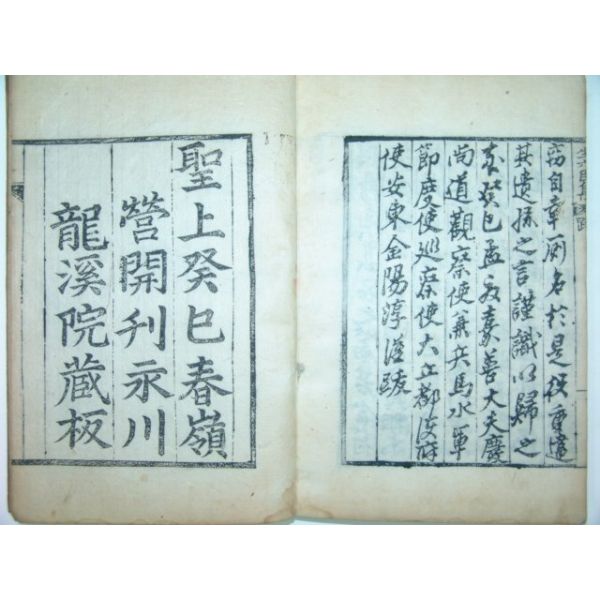 竊自幸厠名於是役重違
其遺孫之言謹識以歸之
癸巳孟嘉善大夫慶
尚道觀察使兼兵馬水軍
節度使巡察使大丘都護府
使安東金陽淳謹跋
聖上癸巳春嶺
營開刊永川
龍溪院藏板